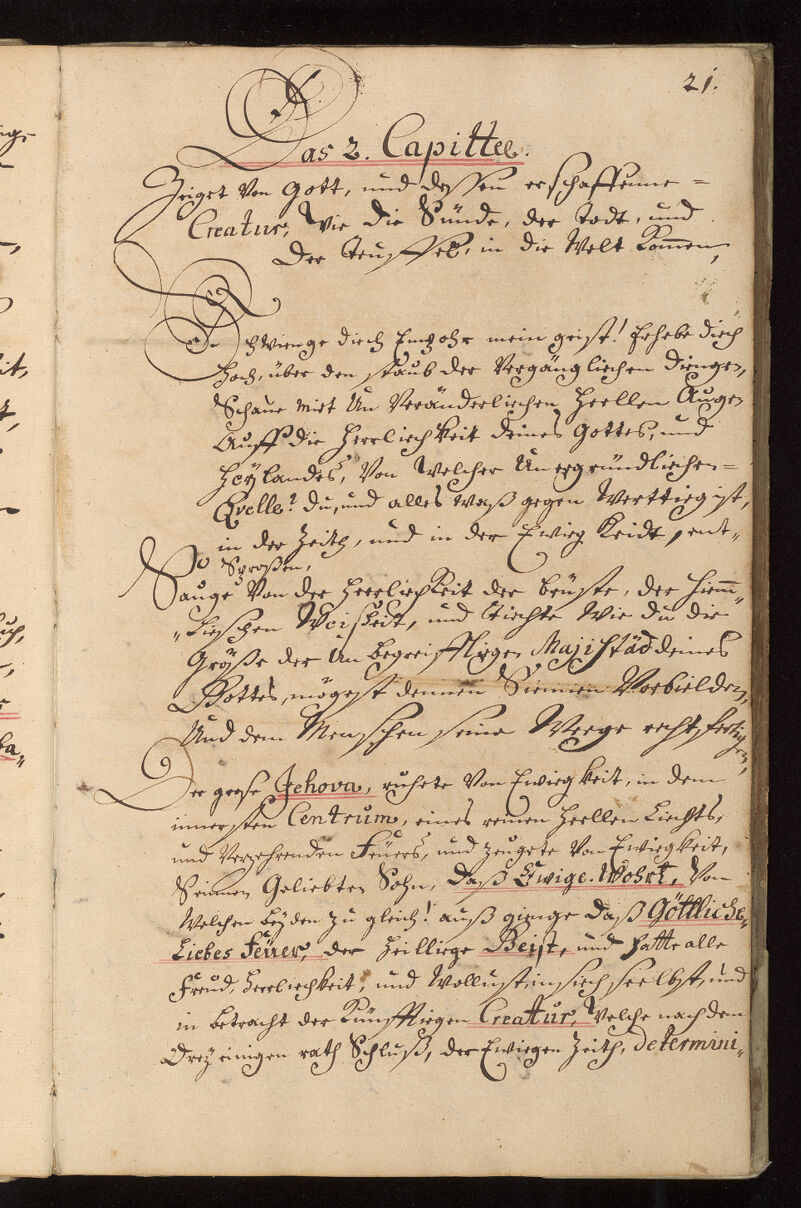 21.
Das 2. Capittel.
Zeiget Von Gott, und dessen erschaffenne =
Creatur, Wie die Sünde, der Todt, und
Der Teuffel, in die Welt kommen,
Ich Schwienge diech Empohr mein geist! Erhebe diech
hoch, über den staub der Vergängliechen Dienge,
Schaue miet Un Veränderliechen heellen Auge
Auff die Herrliechkeit deines Gottes, und
Heÿlandes, Von Welcher Unergründliechen =
Qvelle? du, und alles waß gegen Werttieg ist,
in der Zeith, und in der Ewieg Keidt, ent„
So Sproßen,
Sauge Von der Herrliechkeit der brüste, der hiem„
„Lieschen Weisheit, und Tiechte Wie du die
Größe der Un begreifflieger Majistäd deines
Gottes, mögest dennen Siennen Vorbielden,
Und dem Menschen seine Weege rechtfertigen,
Der große Jehova, ruhete Von Ewiegkeit, in dem
innersten Centrum, eines reinen heellen Liechts,
und Verzehrenden Feüers, und zeugete Von Ewiegkeit,
Seinnen Geliebten Sohn, Daß Ewige. Wohrt, Von
Welchen beÿden zu gleich! auß gienge daß Göttliche
Liebes Feüer, der Heilliege Geist, und hatte alle
Freud, Herrliechkeit, und Wollust, in siech seelbst, und
in betracht der Künfftiegen Creatur, Welche nach dem
Dreÿ einigen rath Schluß, der Ewiegen Zeith, determini„